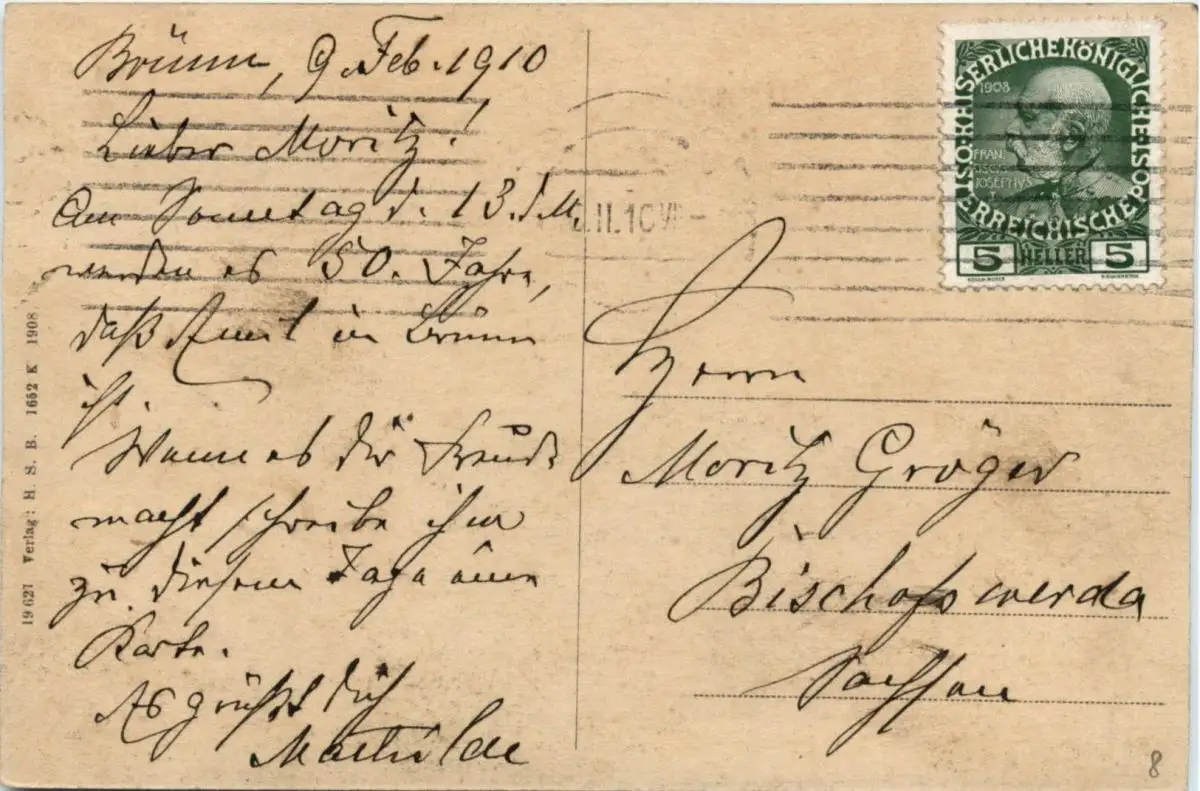 Brünn, 9. Feb. 1910
Lieber Moritz!
Am Sonntag d. 13. d. M.
werden es 50. Jahre,
daß in Brünn
ist.
Wenn es dir Freude
macht schreibe ihm
zu diesem Tage eine
Karte.
Es grüßt dich
Mathilde
Herrn
Moritz Gröger
Bischofswerda
Sachsen
KAISERLICHE KÖNIGLICHE ÖSTERREICHISCHE POST
1908
FRAN
ISCVS
JOSEPHVS
5 HELLER 5
II.10 VI
19627 Verlag: H. S. B. 1652 K 1908
8